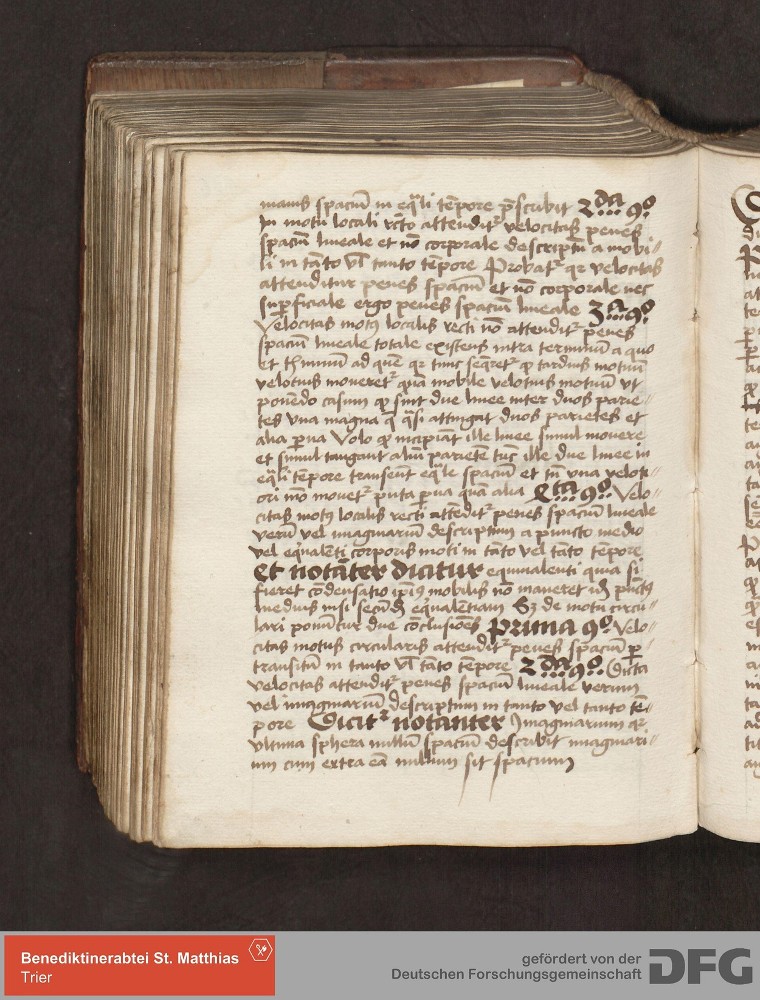 maius spaciū in eq̄li tēpore p̄scribit 2da 9o
In motu locali rcto attendit᷑ velocitas penes
spaciū lineale et nō corporale descriptū a mobi-
li in tāto vl tanto tēpore Probat᷑ qr velocitas
attenditur penes spaciū et nō corporale nec
suꝑficiale ergo penes spaciū lineale 3a 9o
Velocitas motꝯ localis recti nō attendit᷑ penes
spaciū lineale totale existens intra terminū a quo
et tminū ad quē qr tunc seqret᷑ ꝙ tardius motum
velotius moveret᷑ quā mobile velotius motum vt
ponēdo casum ꝙ sint due linee inter duos parie-
tes vna magna q̄ q̄si attingat duos parietes et
alia ꝑua Volo ꝙ incipiāt ille linee simul mouere
et simul tangant aliū parietē tūc ille due linee in
eq̄li tēpore transeūt eq̄le spaciū et tn̄ vna veloti-
ori mō mouet᷑ puta ꝑua quā alia Cta 9o Velo-
citas motꝯ localis recti attēdit᷑ penes spaciū lineale
verum vel imaginariū descriptum a puncto medio
vel equalēti corporis moti in tāto vel tāto tēpore
Et notāter dicitur equiualenti quia si
fieret cōdensatio ipiꝯ mobilis nō maneret id punctꝯ
medius nisi secūdū equalētiam Sꝫ de motu circu-
lari ponūtur due cōclusiōes Prima 9o Velo-
citas motus circularis attendit᷑ penes spaciū ꝑ-
transitū in tanto vl tāto tēpore 2da 9o Dicta
velocitas attendit᷑ penes spaciū lineale verum
vel imaginariū descriptum in tanto vel tanto tē-
pore Dicit᷑ notanter Imaginarium qr
vltima sphera nullū spaciū describit imaginari-
um cum extra eā nullum sit spacium
Benediktinerabtei St. Matthias
Trier
gefördert von der
Deutschen Forschungsgemeinschaft
DFG